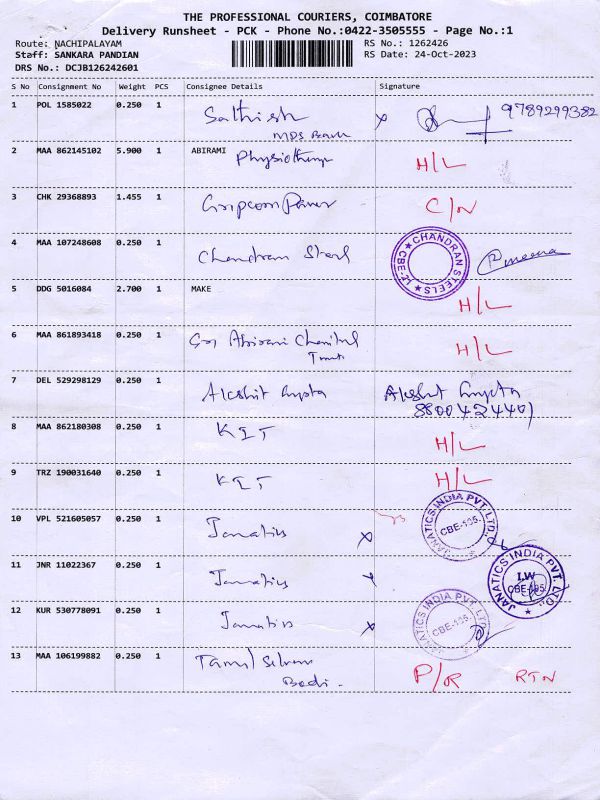 THE PROFESSIONAL COURIERS, COIMBATORE
Delivery Runsheet - PCK - Phone No.:0422-3505555 - Page No.:1
Route: NACHIPALAYAM RS No.: 1262426
Staff: SANKARA PANDIAN RS Date: 24-Oct-2023
DRS No.: DCJB126242601
S No Consignment No Weight PCS Consignee Details Signature
1 POL 1585022 0.250 1 Sathish 9789299382
MDS Bank
2 MAA 862145102 5.900 1 ABIRAMI H/L
3 CHK 29368893 1.455 1 C/N
4 MAA 107248608 0.250 1 Chandran Steel CHANDRAN STEELS CBE-21 Rmeena
5 DDG 5016084 2.700 1 MAKE H/L
6 MAA 861893418 0.250 1 Sri Abirami H/L
Trust
7 DEL 529298129 0.250 1 Akshit Gupta Akshit Gupta
8800424401
8 MAA 862180308 0.250 1 KIT H/L
9 TRZ 190031640 0.250 1 KIT H/L
10 VPL 521605057 0.250 1 Janatics x JANATICS INDIA PVT. LTD., CBE-105.
11 JNR 11022367 0.250 1 Janatics x JANATICS INDIA PVT. LTD., I.W CBE-105.
12 KUR 530778091 0.250 1 Janatics x JANATICS INDIA PVT. LTD., CBE-105.
13 MAA 106199882 0.250 1 Tamil Selvan P/R RTN
Badi.